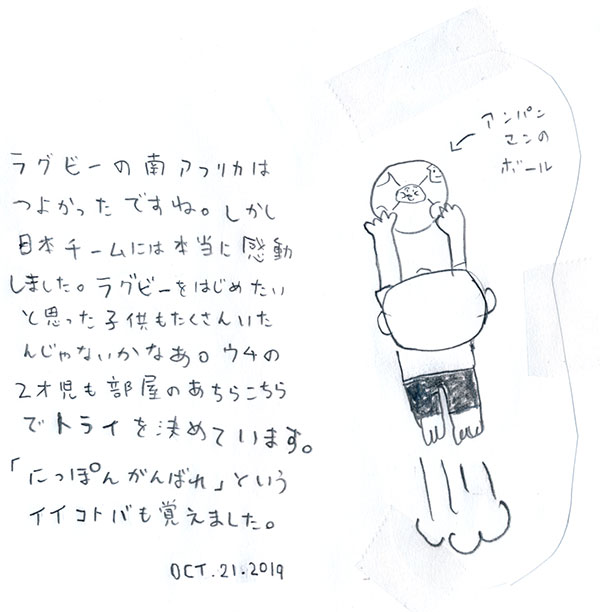 ラグビーの南アフリカは
つよかったですね。しかし
日本チームには本当に感動
しました。ラグビーをはじめたい
と思った子供もたくさんいた
んじゃないかなあ。ウチの
2才児も部屋のあちらこちら
でトライを決めています。
「にっぽんがんばれ」という
イイコトバも覚えました。
OCT.21.2019
アンパン
マンの
ボール